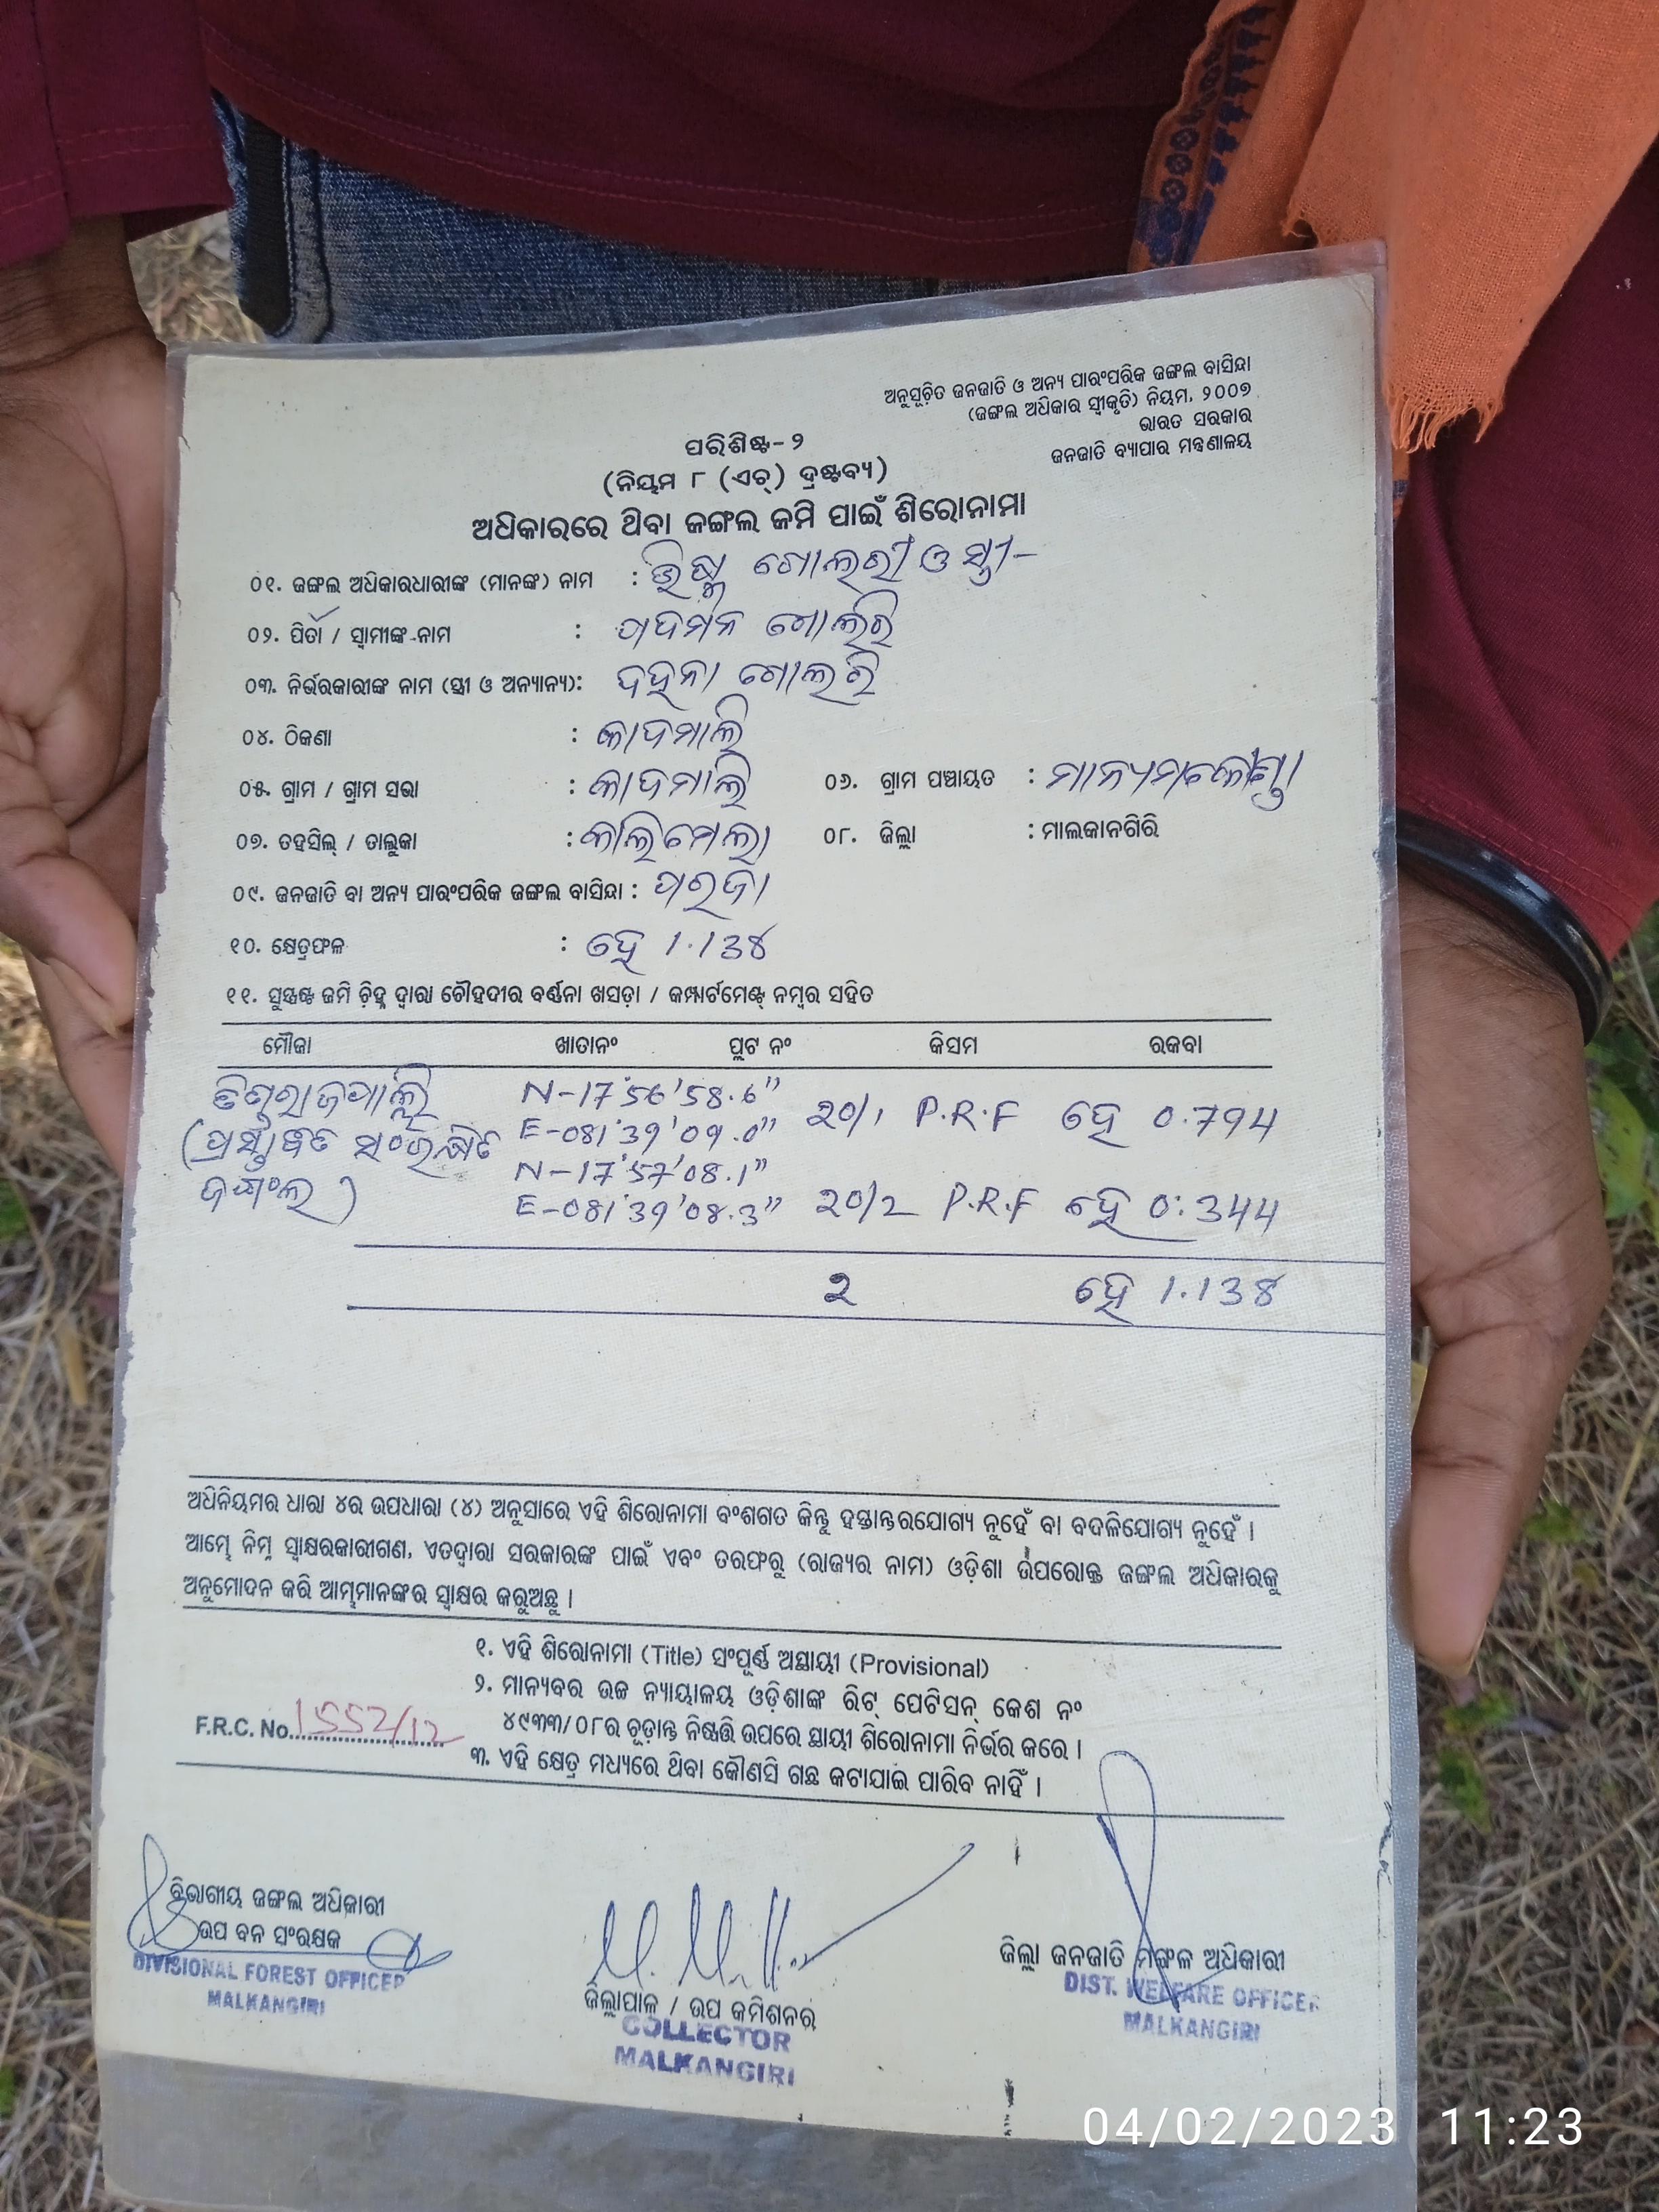 ଅନୁସୂଚିତ ଜନଜାତି ଓ ଅନ୍ୟ ପାରଂପରିକ ଜଙ୍ଗଲ ବାସିନ୍ଦା
(ଜଙ୍ଗଲ ଅଧିକାର ସ୍ୱୀକୃତି) ନିୟମ, ୨୦୦୭
ଭାରତ ସରକାର
ଜନଜାତି ବ୍ୟାପାର ମନ୍ତ୍ରଣାଳୟ
ପରିଶିଷ୍ଟ-୨
(ନିୟମ ୮ (ଏଚ୍) ଦ୍ରଷ୍ଟବ୍ୟ)
ଅଧିକାରରେ ଥିବା ଜଙ୍ଗଲ ଜମି ପାଇଁ ଶିରୋନାମା
୦୧. ଜଙ୍ଗଲ ଅଧିକାରଧାରୀଙ୍କ (ମାନଙ୍କ) ନାମ : ଭିଷ୍ମ ଗୋଲରୀ ଓ ସ୍ତ୍ରୀ-
୦୨. ପିତା / ସ୍ୱାମୀଙ୍କ ନାମ : ପଦମନ ଗୋଲରି
୦୩. ନିର୍ଭରକାରୀଙ୍କ ନାମ (ସ୍ତ୍ରୀ ଓ ଅନ୍ୟାନ୍ୟ): ଦହନା ଗୋଲରି
୦୪. ଠିକଣା : କାଦମାଲି
୦୫. ଗ୍ରାମ / ଗ୍ରାମ ସଭା : କାଦମାଲି ୦୬. ଗ୍ରାମ ପଞ୍ଚାୟତ : ମାନ୍ୟମକୋଣ୍ଡା
୦୭. ତହସିଲ୍ / ତାଲୁକା : କାଲିମେଲା ୦୮. ଜିଲ୍ଲା : ମାଲକାନଗିରି
୦୯. ଜନଜାତି ବା ଅନ୍ୟ ପାରଂପରିକ ଜଙ୍ଗଲ ବାସିନ୍ଦା : ପରଜା
୧୦. କ୍ଷେତ୍ରଫଳ : ହେ 1.138
୧୧. ସୁସ୍ପଷ୍ଟ ଜମି ଚିହ୍ନ ଦ୍ୱାରା ଚୌହଦୀର ବର୍ଣ୍ଣନା ଖସଡ଼ା / କମ୍ପାର୍ଟମେଣ୍ଟ୍ ନମ୍ବର ସହିତ
ମୌଜା ଖାତାନଂ ପ୍ଲଟ ନଂ କିସମ ରକବା
N-17°56'58.6"
E-081°39'09.0" ୨୦/1 P.R.F ହେ 0.794
(ପ୍ରସ୍ତାବିତ ସଂରକ୍ଷିତ
N-17°57'08.1"
ଜଙ୍ଗଲ) E-081°39'08.3" ୨୦/2 P.R.F ହେ 0.344
୨ ହେ 1.138
ଅଧିନିୟମର ଧାରା ୪ର ଉପଧାରା (୪) ଅନୁସାରେ ଏହି ଶିରୋନାମା ବଂଶଗତ କିନ୍ତୁ ହସ୍ତାନ୍ତରଯୋଗ୍ୟ ନୁହେଁ ବା ବଦଳିଯୋଗ୍ୟ ନୁହେଁ ।
ଆମ୍ଭେ ନିମ୍ନ ସ୍ୱାକ୍ଷରକାରୀଗଣ, ଏତଦ୍ୱାରା ସରକାରଙ୍କ ପାଇଁ ଏବଂ ତରଫରୁ (ରାଜ୍ୟର ନାମ) ଓଡ଼ିଶା ଉପରୋକ୍ତ ଜଙ୍ଗଲ ଅଧିକାରକୁ
ଅନୁମୋଦନ କରି ଆମ୍ଭମାନଙ୍କର ସ୍ୱାକ୍ଷର କରୁଅଛୁ ।
୧. ଏହି ଶିରୋନାମା (Title) ସଂପୂର୍ଣ୍ଣ ଅସ୍ଥାୟୀ (Provisional)
୨. ମାନ୍ୟବର ଉଚ୍ଚ ନ୍ୟାୟାଳୟ ଓଡ଼ିଶାଙ୍କ ରିଟ୍ ପେଟିସନ୍ କେଶ ନଂ
୪୯୩୩/୦୮ର ଚୂଡ଼ାନ୍ତ ନିଷ୍ପତ୍ତି ଉପରେ ସ୍ଥାୟୀ ଶିରୋନାମା ନିର୍ଭର କରେ ।
F.R.C. No. 1552/12
୩. ଏହି କ୍ଷେତ୍ର ମଧ୍ୟରେ ଥିବା କୌଣସି ଗଛ କଟାଯାଇ ପାରିବ ନାହିଁ ।
ବିଭାଗୀୟ ଜଙ୍ଗଲ ଅଧିକାରୀ
ଉପ ବନ ସଂରକ୍ଷକ
DIVISIONAL FOREST OFFICER
MALKANGIRI
ଜିଲ୍ଲାପାଳ / ଉପ କମିଶନର
COLLECTOR
MALKANGIRI
ଜିଲ୍ଲା ଜନଜାତି ମଙ୍ଗଳ ଅଧିକାରୀ
DIST. WELFARE OFFICER
MALKANGIRI
04/02/2023 11:23